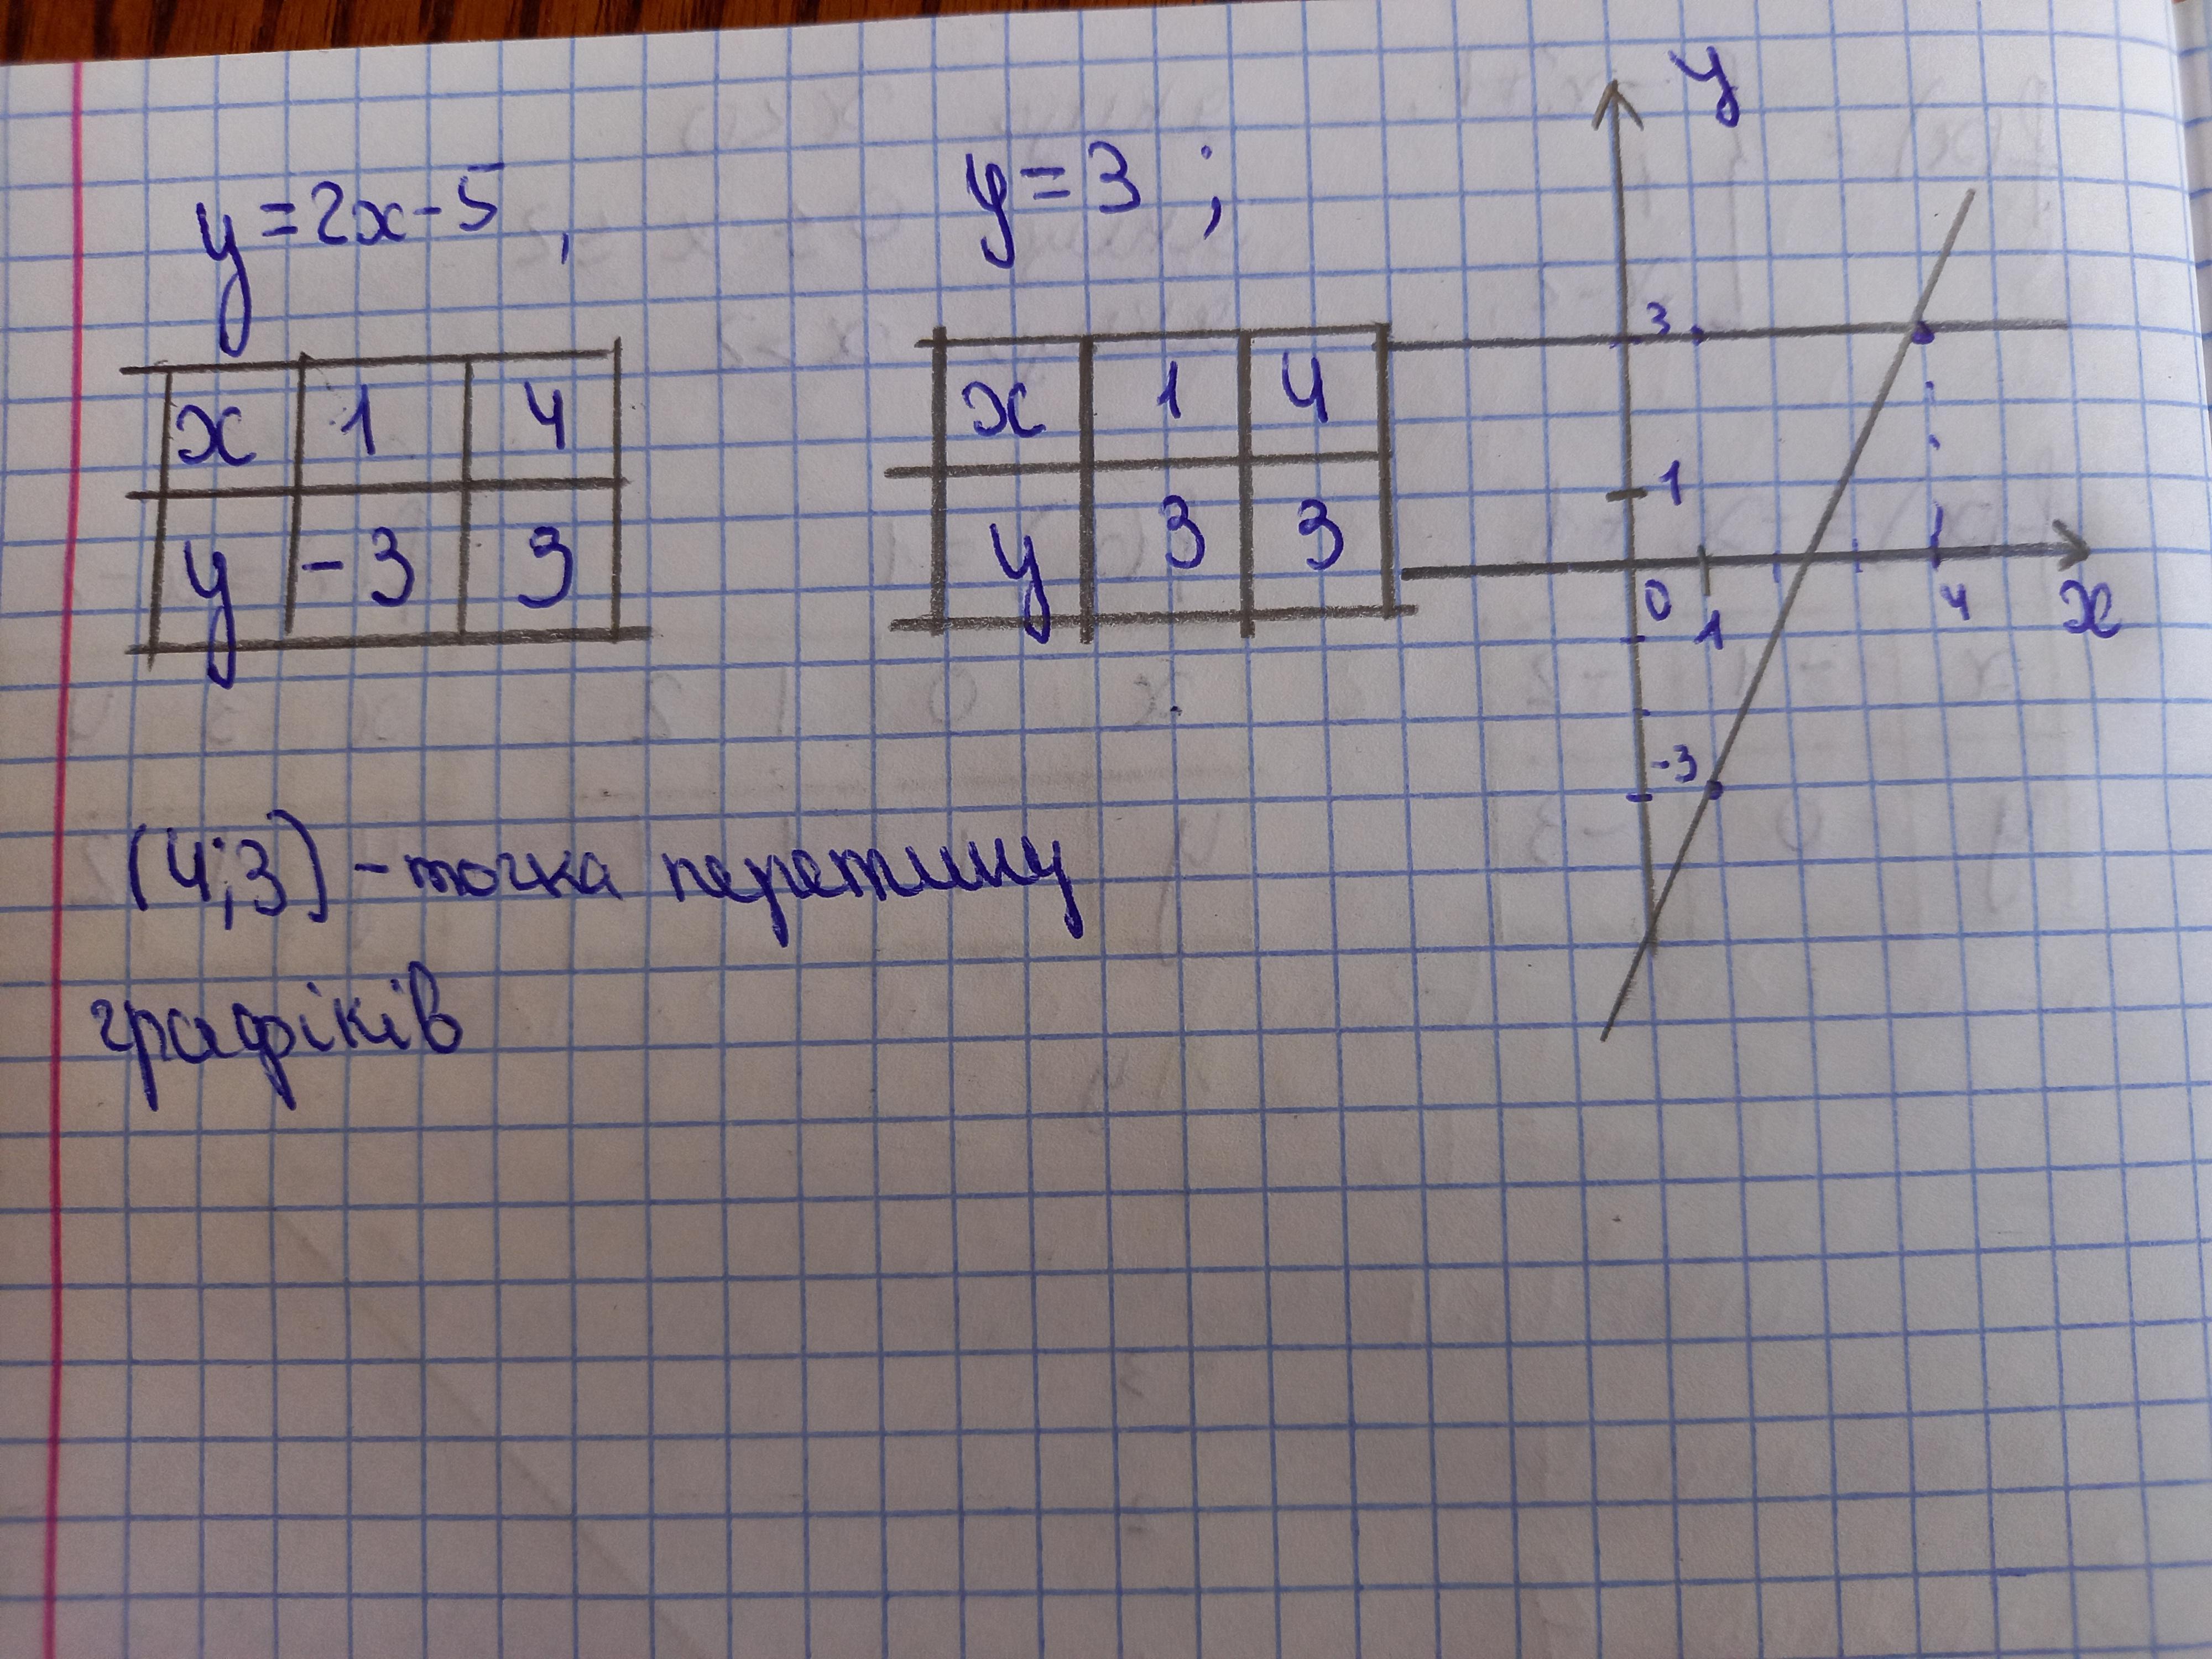 y = 2x - 5 ,
y = 3 ;
x 1 4
y -3 3
x 1 4
y 3 3
y
3
1
0 1 4 x
-3
(4;3) - точка перетину
графіків